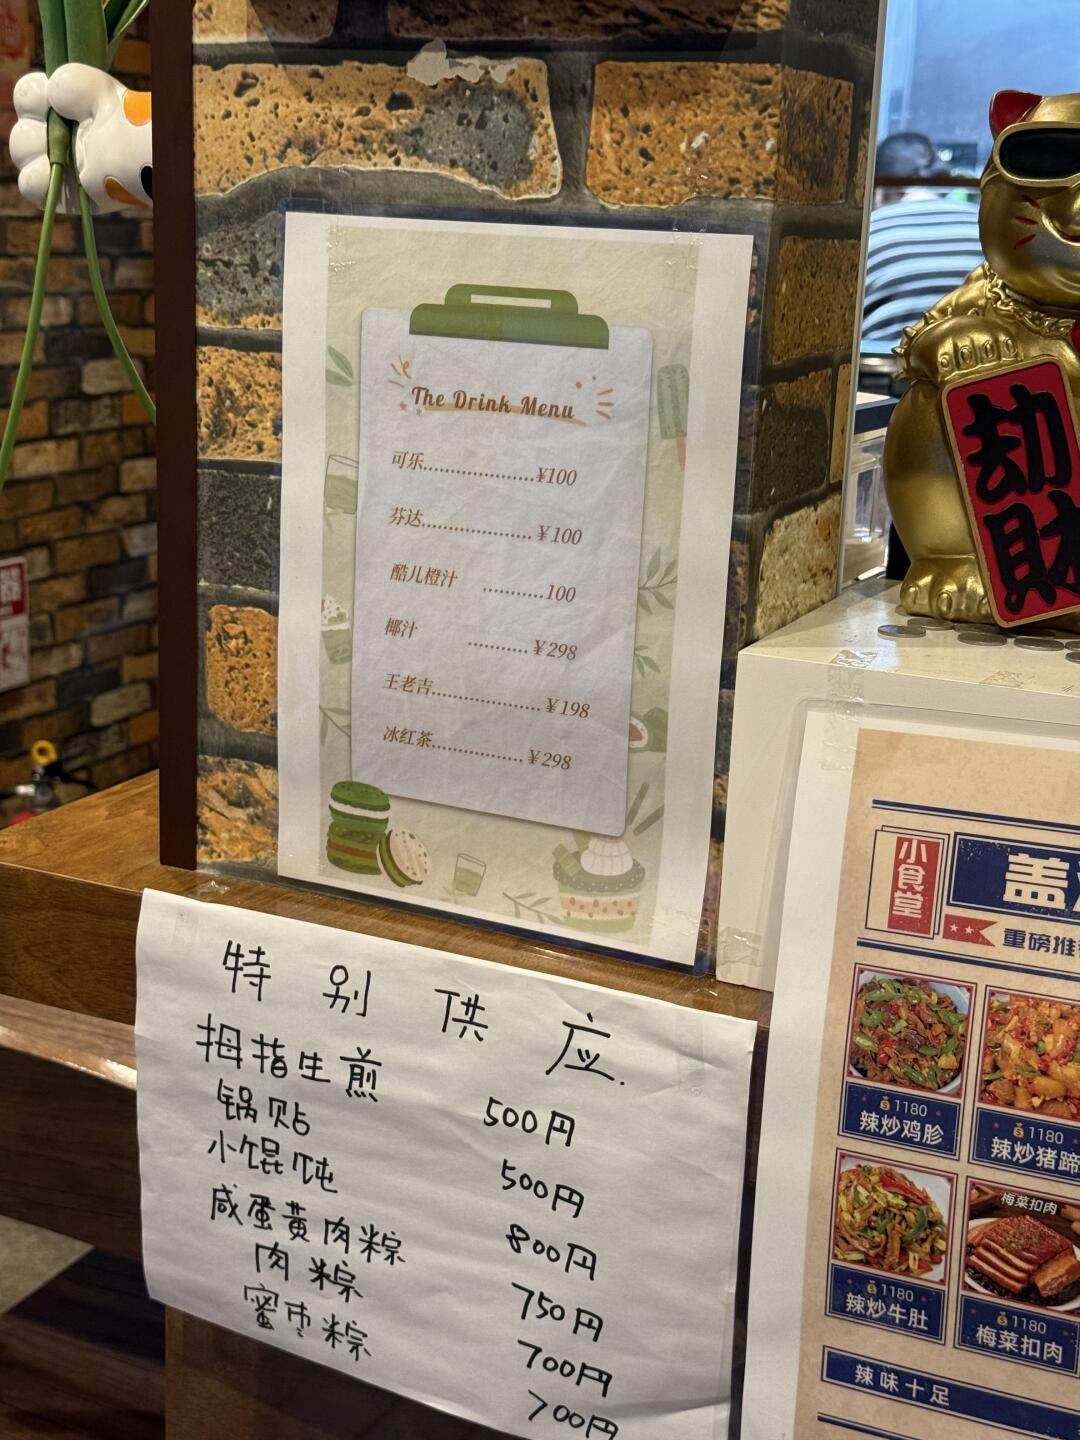 The Drink Menu
可乐....................¥100
芬达....................¥100
酷儿橙汁 ...........100
椰汁 ...........¥298
王老吉....................¥198
冰红茶................¥298
特别供应.
拇指生煎 500円
锅贴 500円
小馄饨 800円
咸蛋黄肉粽 750円
肉粽 700円
蜜枣粽 700円
劫
财
小食堂
盖
重磅推
1180
辣炒鸡胗
1180
辣炒猪蹄
1180
辣炒牛肚
梅菜扣肉
1180
梅菜扣肉
辣味十足